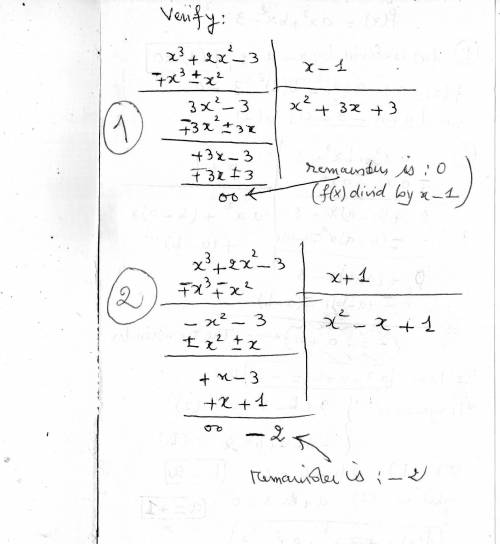 Verify:
x³ + 2x² - 3 | x - 1
∓x³ ± x²
3x² - 3 | x² + 3x + 3
∓3x² ± 3x
+3x - 3
∓3x ± 3
00 ← remainder is : 0
(f(x) divid by x - 1)
1
x³ + 2x² - 3 | x + 1
∓x³ ∓ x²
- x² - 3 | x² - x + 1
± x² ± x
+ x - 3
+ x + 1
00 - 2
remainder is : - 2
2